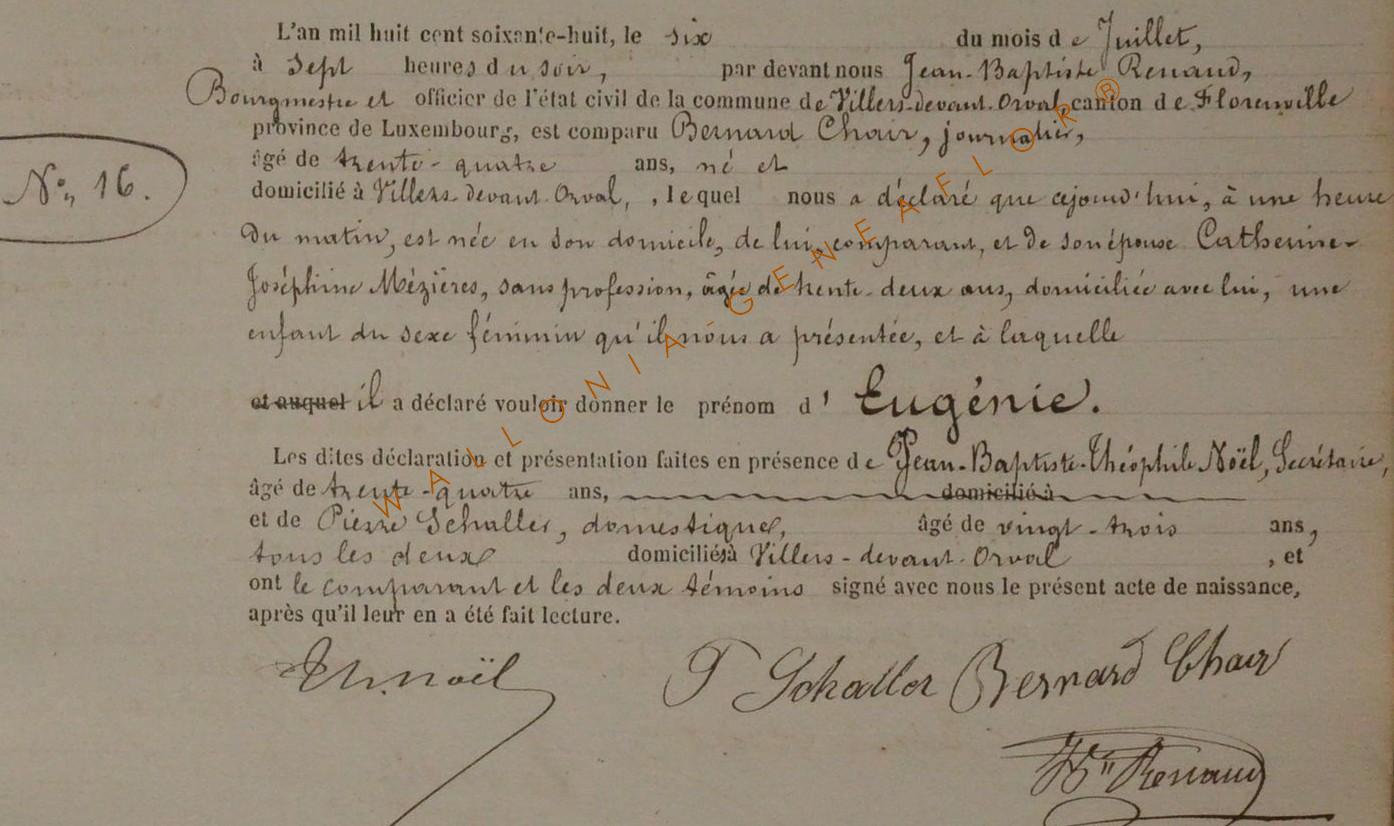 L'an mil huit cent soixante-huit, le six du mois de Juillet,
à Sept heures du soir, par devant nous Jean-Baptiste Renaud,
Bourgmestre et officier de l'état civil de la commune de Villers-devant-Orval canton de Florenville
province de Luxembourg, est comparu Bernard Chair, journalier,
âgé de trente-quatre ans, né et
N° 16.
domicilié à Villers-devant-Orval, , lequel nous a déclaré que cejourd'hui, à une heure
du matin, est née en son domicile, de lui, comparant, et de son épouse Catherine-
Joséphine Mézières, sans profession, âgée de trente-deux ans, domiciliée avec lui, une
enfant du sexe féminin qu'il nous a présentée, et à laquelle
et auquel il a déclaré vouloir donner le prénom d' Eugénie.
Les dites déclaration et présentation faites en présence de Jean-Baptiste-Théophile Noël, Secrétaire,
âgé de trente-quatre ans, domicilié à
et de Pierre Schaller, domestique, âgé de vingt-trois ans,
tous les deux domiciliés à Villers-devant-Orval , et
ont le comparant et les deux témoins signé avec nous le présent acte de naissance,
après qu'il leur en a été fait lecture.
Th. Noël P Schaller Bernard Chair
Renaud
WALLONIA GENEAFLOR ®